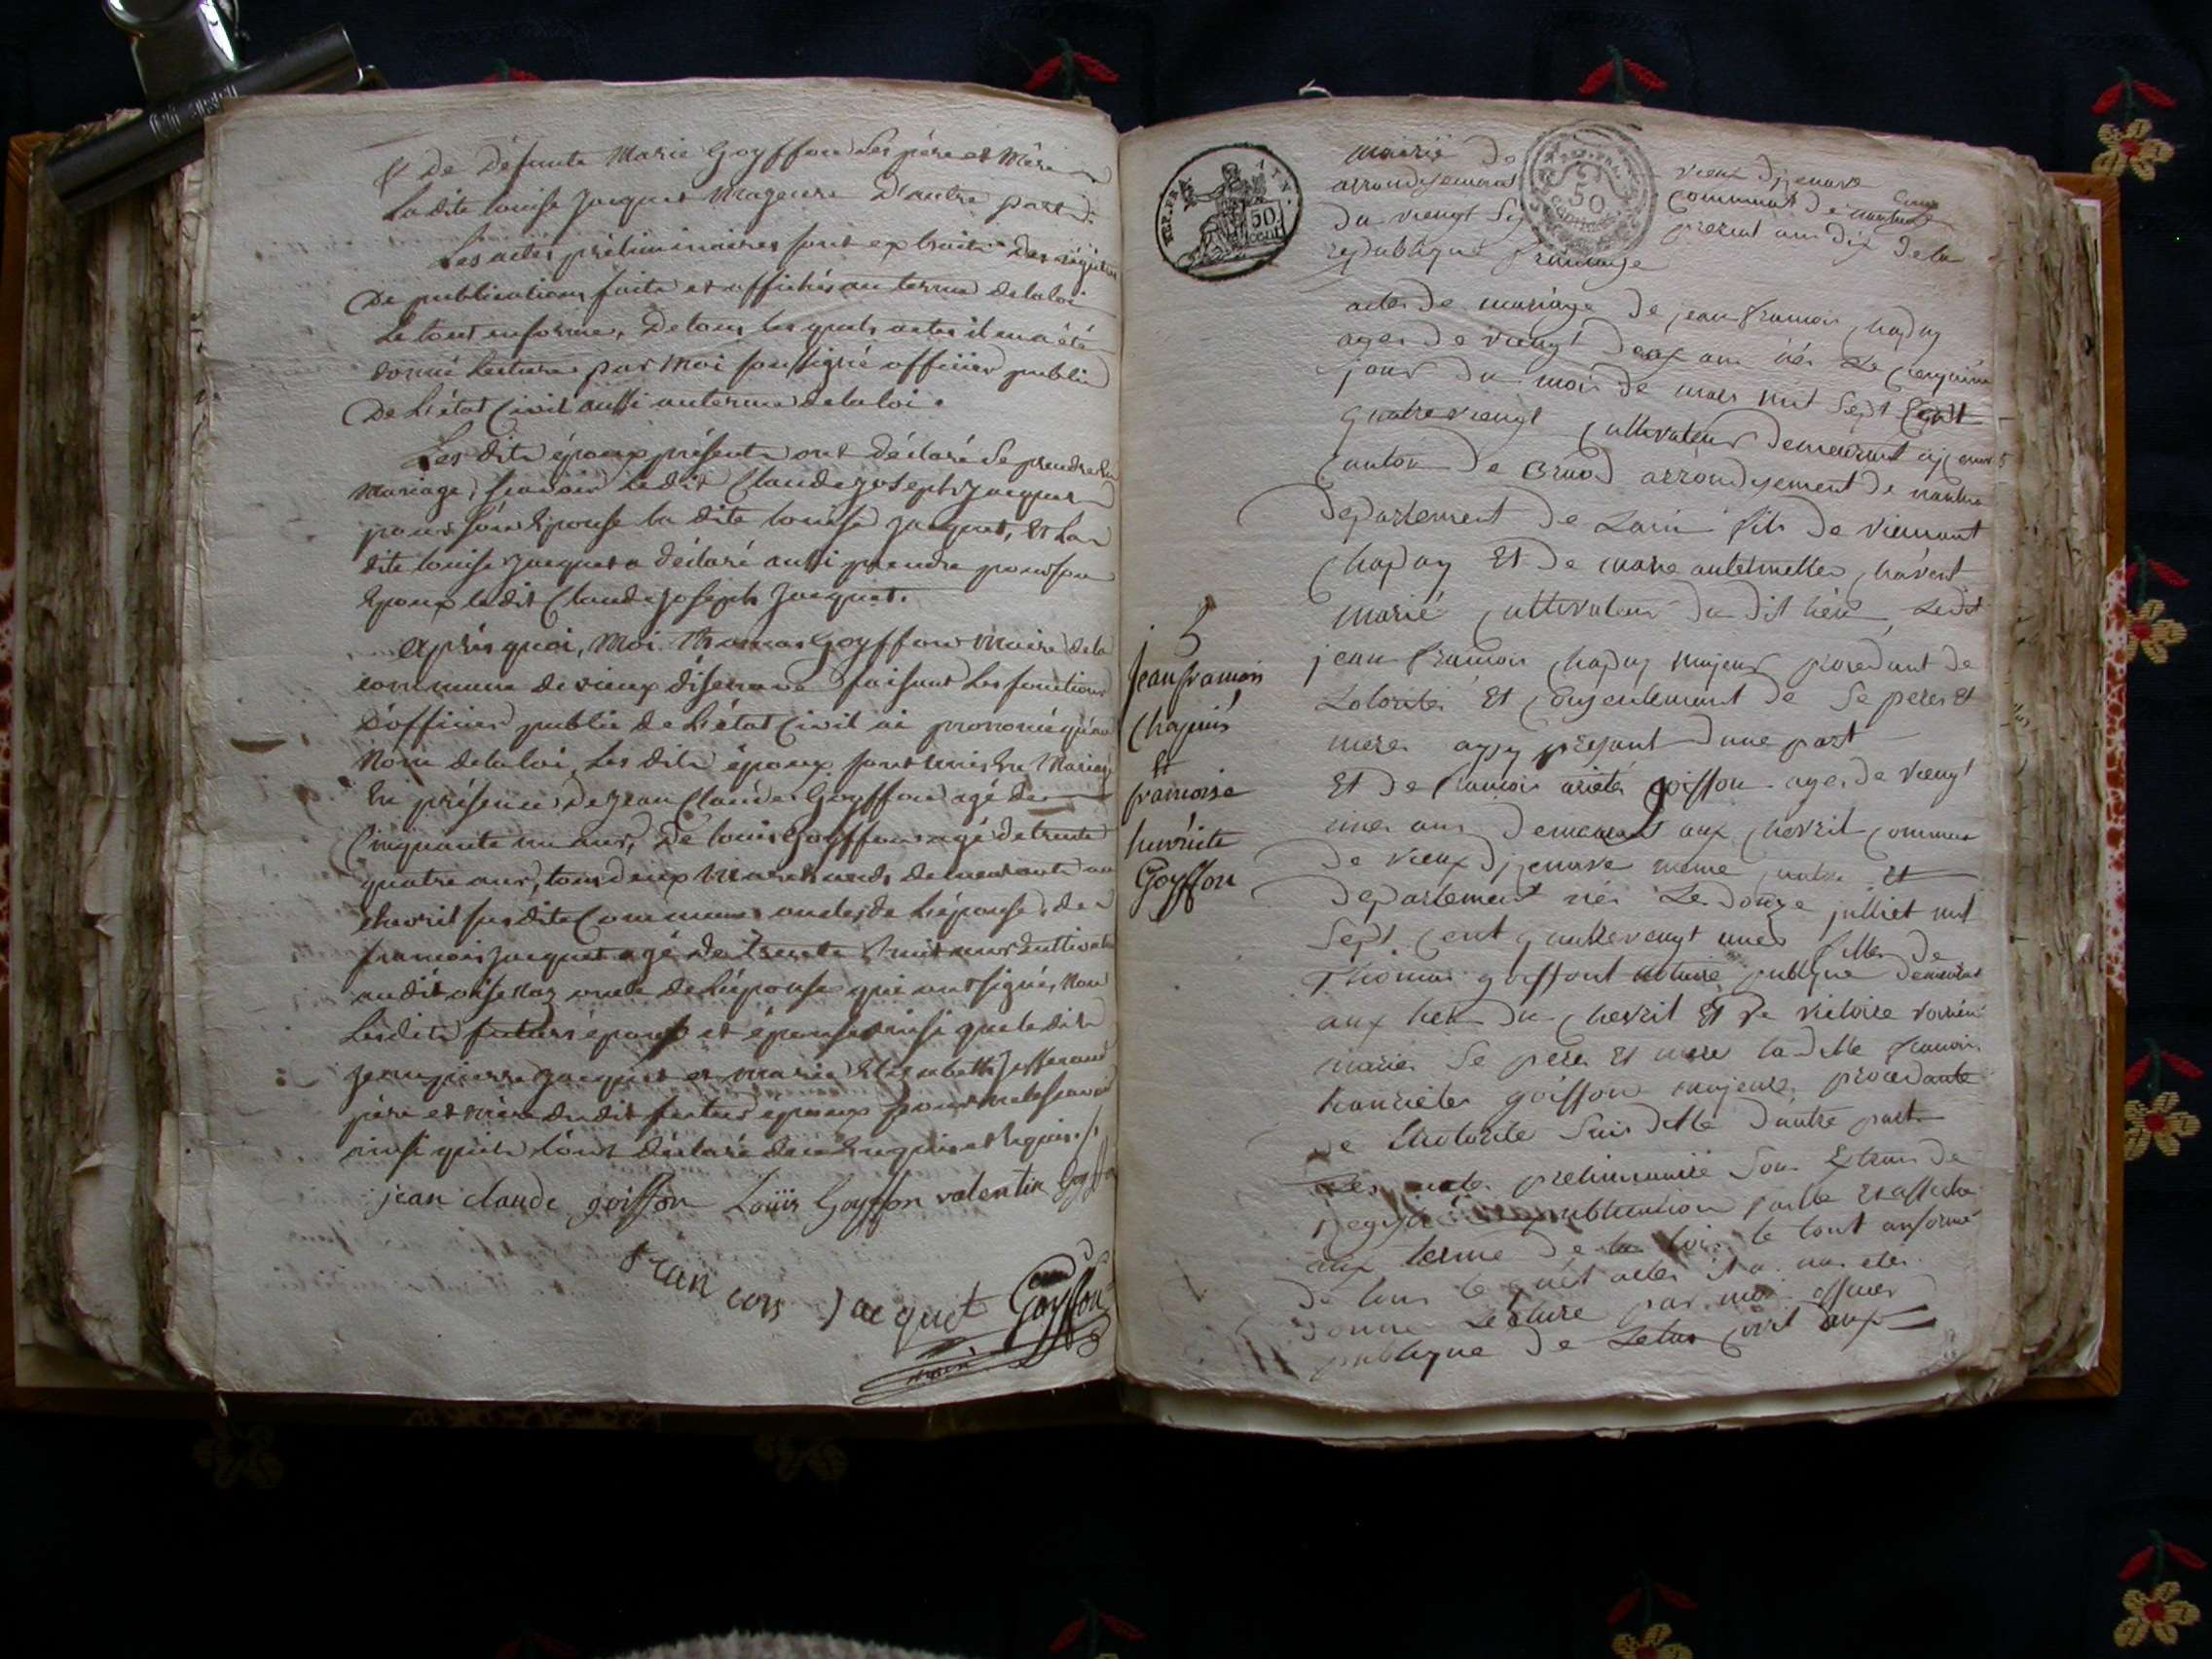 & De Défunte Marie Goyffon Ses père et Mère
La dite louise Jacquet Majeure D'autre part.
Les actes préliminaires sont extraits Des régitres
De publications faite et affichés au terme de la loi
Le tout en forme, De tous les quels actes il en a été
donné Lecture par Moi soussigné officier public
De L'état Civil aussi au terme de la loi.
Les dits époux présents ont Déclaré Se prendre En
Mariage, savoir Ledit Claude Joseph Jacquet
pour son Epouse la dite louise Jacquet, Et La
dite louise Jacquet a déclaré aussi prendre pour son
Epoux le dit Claude Joseph Jacquet.
Après quoi, Moi Thomas Goyffon Maire de la
commune de vieux d'isenave faisant Les fonctions
D'officier public de L'état Civil ai prononcé qu'au
Nom de la loi, Les dits époux sont unis En Mariage
En présence De Jean Claude Goyffon agé de
Cinquante un ans, De louis Goyffon agé de trente
quatre ans, tous deux Marchands demeurants au
chevril susdite Commune oncles de L'épouse, de
francois Jacquet agé de Trente huit ans Cultivateur
oncle de L'épouse qui ont signé, Non
Lesdits futurs époux et épouse ainsi que le dit
Jean pierre Jacquet et marie Elizabeth
père et mère du dit futur époux pour ne le savoir
ainsi qu'ils l'ont déclaré de ce Enquis et Requis.
jean claude goiffon Loüis Goyffon valentin Goyffon
francois Jacquet Goyffon
maire
EMP. FRA
50 cent
50
Mairie de vieux dizenave
arrondisement communal de nantua
du viengt present an dix de la
republique francaise
actes de mariage de jean francois chapuy
ages de viengt deux ans nés Le
jour du mois de mars mil sept Cent
quatre viengt cultivateur demeurant
Canton de Brenod arrondisement de nantua
departement de Lain fils de viencant
chapuy Et De marie
marié cultivateur du dit lieu Ledit
jean francois chapuy majeur procedant de
Lotorités Et Consentement de Se peres Et
meres present dune part
Et de francois goiffon ages de viengt
unes ans demeurant aux chevril commune
de vieux dizenave meme canton Et
departement nés Le douze julliet mil
sept cent quatre vengt unes filles de
Thomas goiffont notaire publique demeurant
aux lieu du chevril Et De victoire
mariés Se peres Et mere la ditte francois
hanrietes goiffon majeures procedante
de Lhotorite Suis ditte dautre part
Les actes preliminaire Son Extrais de
publication faitte Et affiche
aux terme de la lois le tout anforme
de tous le quels actes il a nus etes
donne Lecture par moi officier
publique de Letas civil aux
5
Jean francois
Chapuis
Et
francoise
henriéte
Goyffon